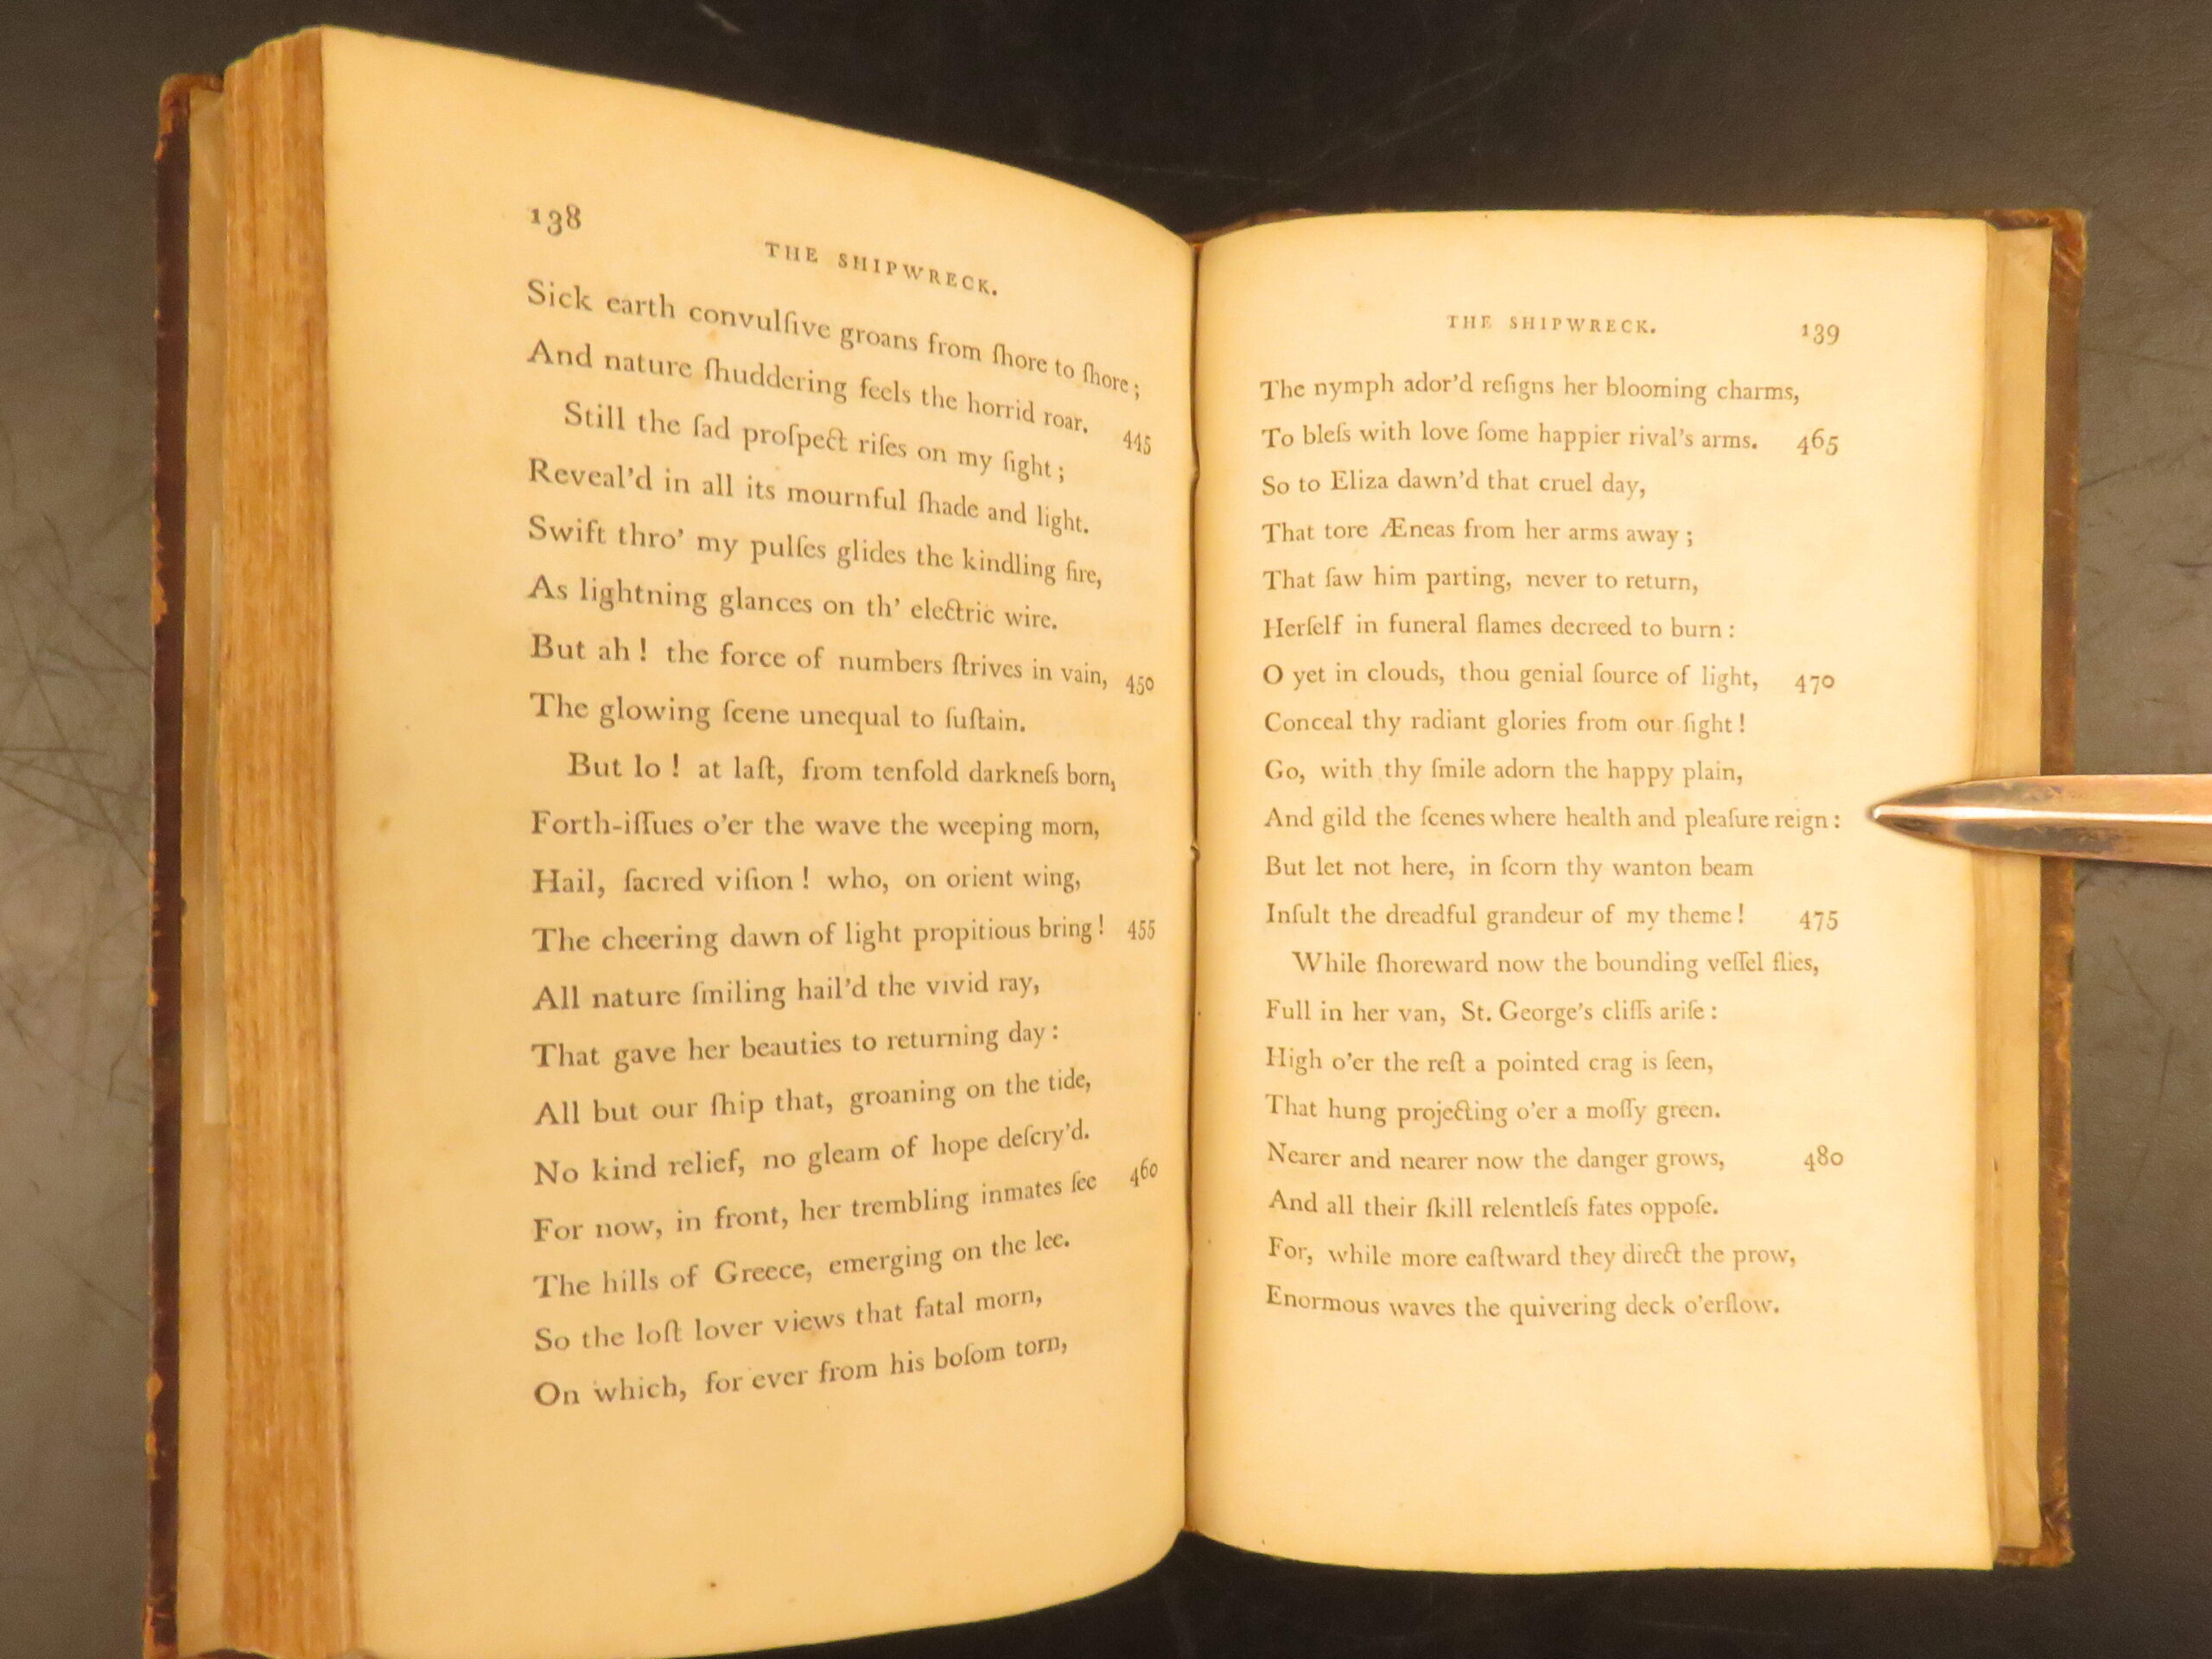 138
THE SHIPWRECK.
Sick earth convulſive groans from ſhore to ſhore;
And nature ſhuddering feels the horrid roar. 445
Still the ſad proſpect riſes on my ſight;
Reveal'd in all its mournful ſhade and light.
Swift thro' my pulſes glides the kindling fire,
As lightning glances on th' electric wire.
But ah! the force of numbers ſtrives in vain, 450
The glowing ſcene unequal to ſuſtain.
But lo! at laſt, from tenfold darkneſs born,
Forth-iſſues o'er the wave the weeping morn,
Hail, ſacred viſion! who, on orient wing,
The cheering dawn of light propitious bring! 455
All nature ſmiling hail'd the vivid ray,
That gave her beauties to returning day:
All but our ſhip that, groaning on the tide,
No kind relief, no gleam of hope deſcry'd.
For now, in front, her trembling inmates ſee 460
The hills of Greece, emerging on the lee.
So the loſt lover views that fatal morn,
On which, for ever from his boſom torn,
THE SHIPWRECK. 139
The nymph ador'd reſigns her blooming charms,
To bleſs with love ſome happier rival's arms. 465
So to Eliza dawn'd that cruel day,
That tore Æneas from her arms away;
That ſaw him parting, never to return,
Herſelf in funeral flames decreed to burn:
O yet in clouds, thou genial ſource of light, 470
Conceal thy radiant glories from our ſight!
Go, with thy ſmile adorn the happy plain,
And gild the ſcenes where health and pleaſure reign:
But let not here, in ſcorn thy wanton beam
Inſult the dreadful grandeur of my theme! 475
While ſhoreward now the bounding veſſel flies,
Full in her van, St. George's cliffs ariſe:
High o'er the reſt a pointed crag is ſeen,
That hung projecting o'er a moſſy green.
Nearer and nearer now the danger grows, 480
And all their ſkill relentleſs fates oppoſe.
For, while more eaſtward they direct the prow,
Enormous waves the quivering deck o'erflow.